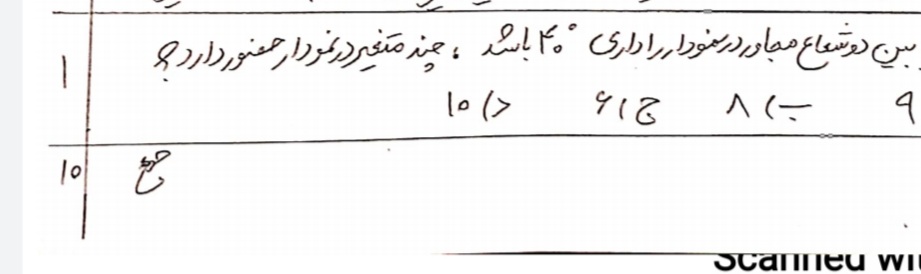 بین دو شعاع مجاور در نمودار راداری ۴۰° باشد ، چند متغیر در نمودار حضور دارد؟
۱
۹ ب) ۸ ج) ۶ د) ۱۰
۱۰ جمع
Scanned wi